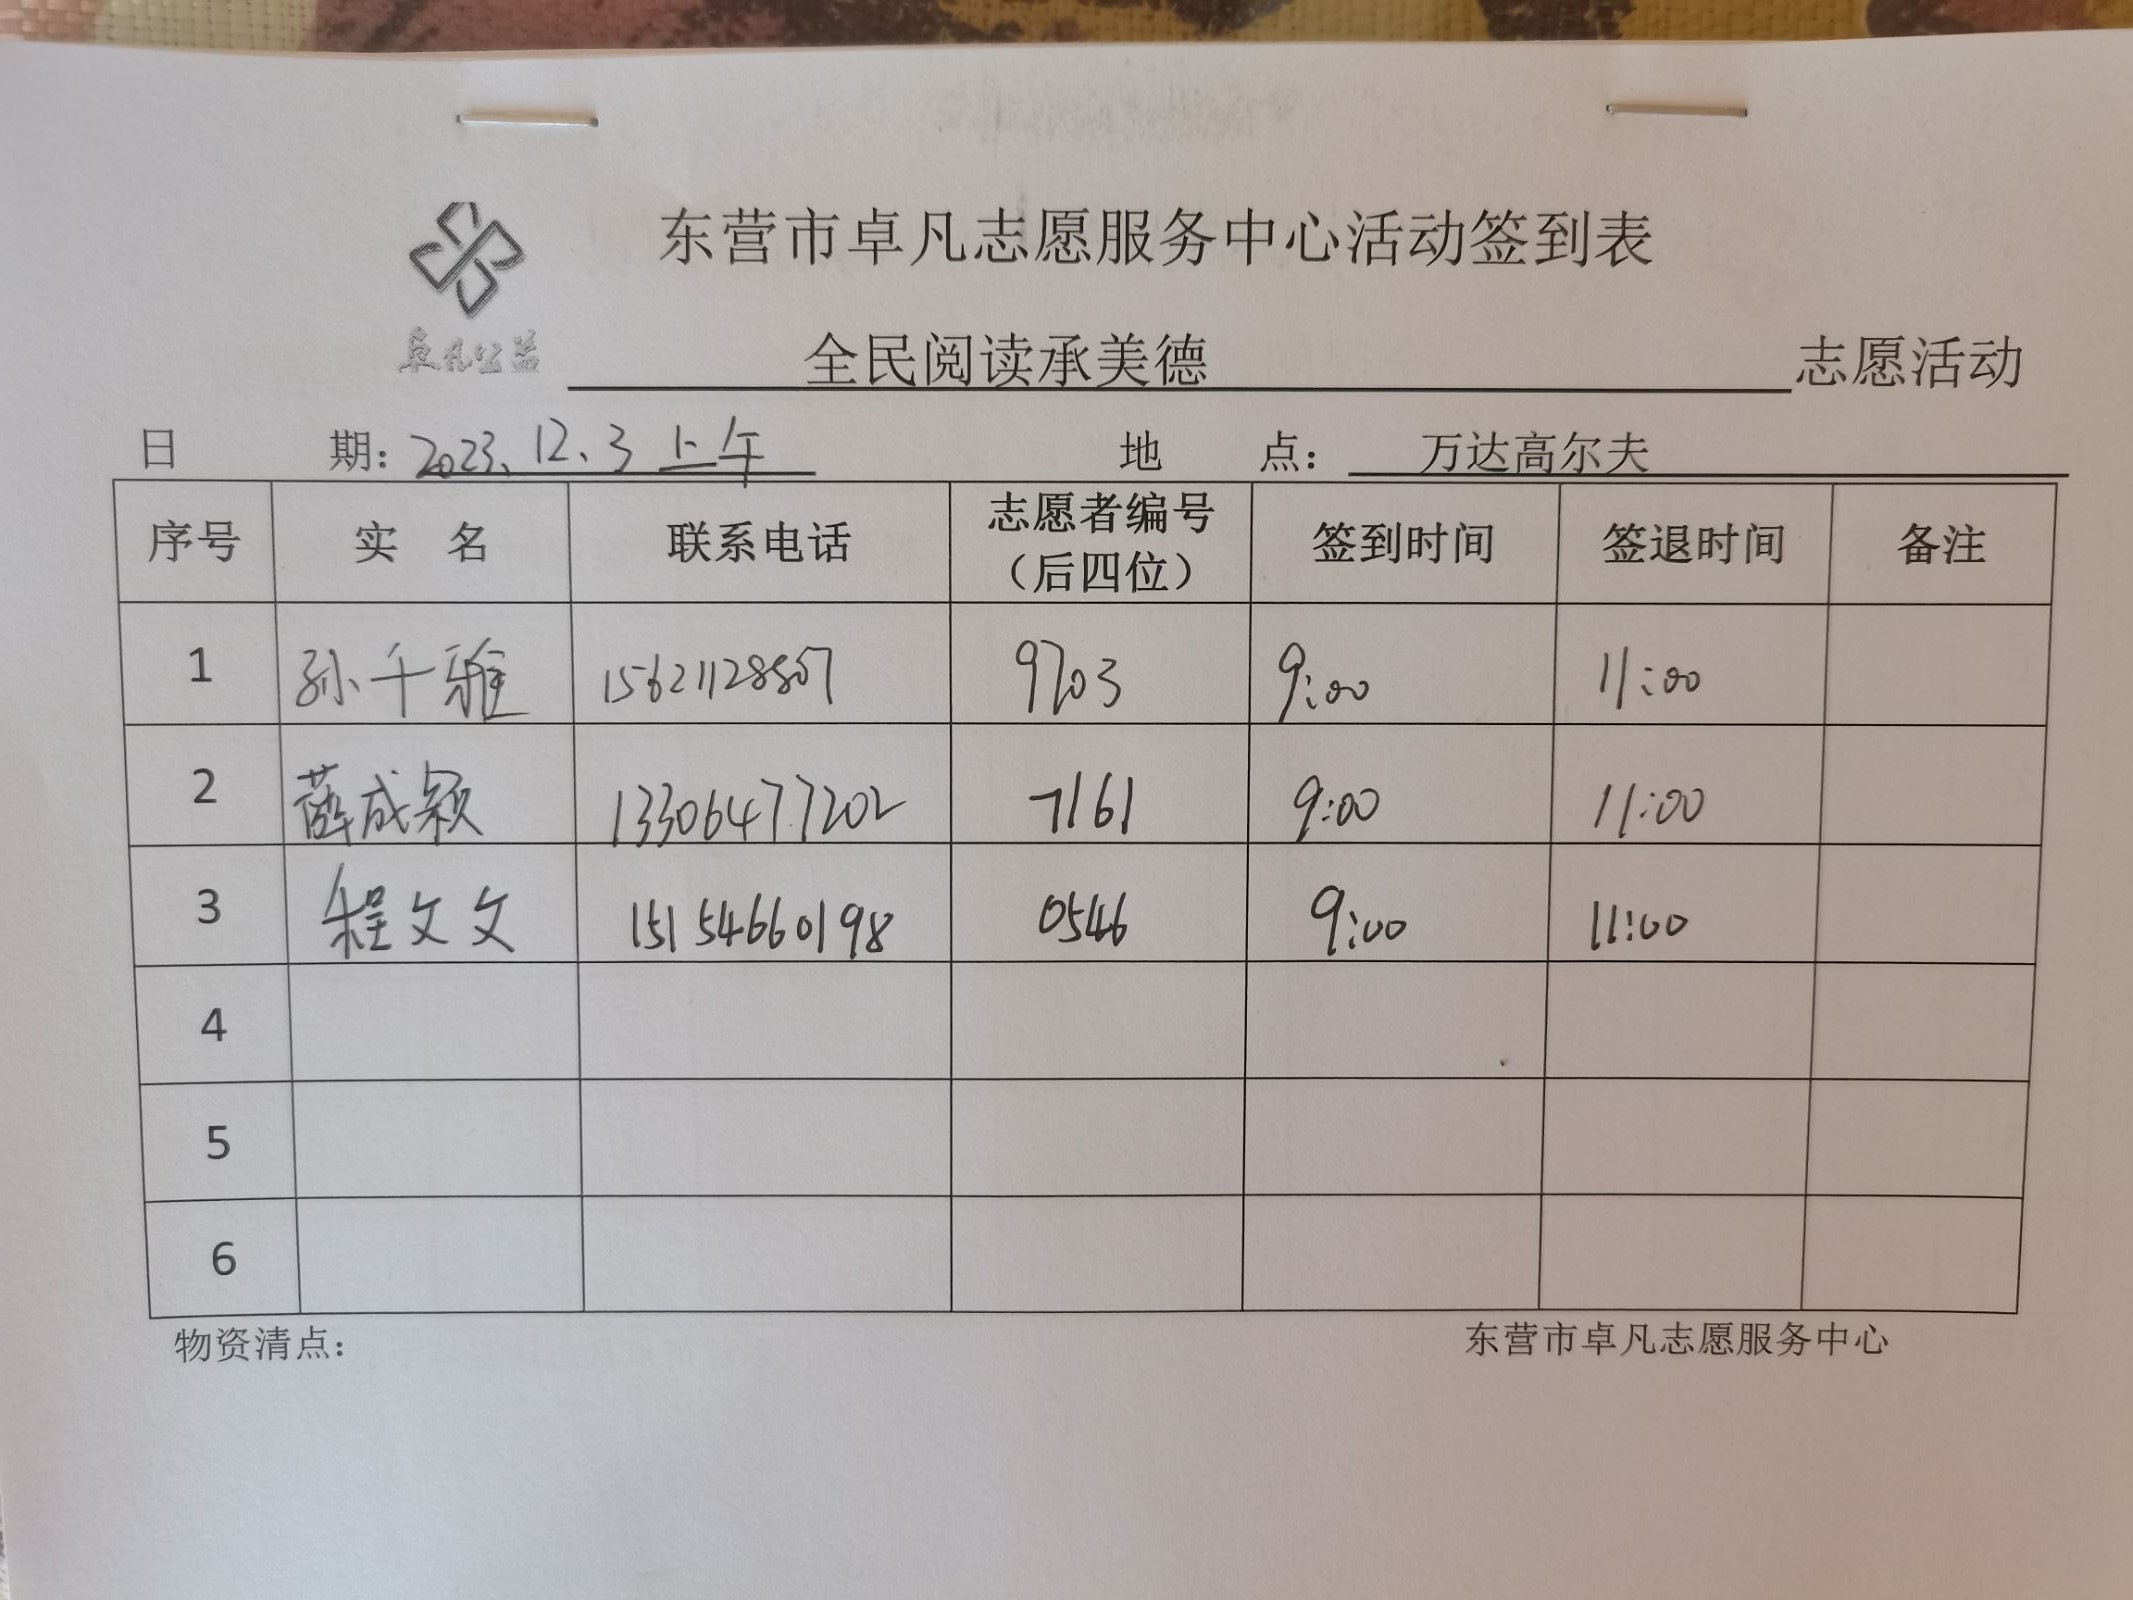 东营市卓凡志愿服务中心活动签到表
卓凡公益
全民阅读承美德 志愿活动
日 期：2023.12.3 上午 地 点：万达高尔夫
序号 实 名 联系电话 志愿者编号（后四位） 签到时间 签退时间 备注
1 孙千雅 15621128807 9703 9:00 11:00
2 薛成颖 13306477202 7161 9:00 11:00
3 程文文 15154660198 0546 9:00 11:00
4
5
6
物资清点： 东营市卓凡志愿服务中心